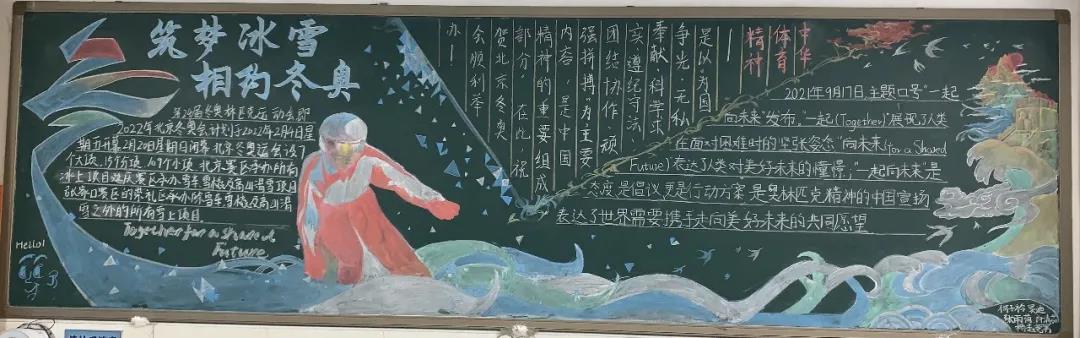 筑梦冰雪
相约冬奥
第24届冬奥林匹克运动会即
2022年北京冬奥会计划于2022年2月4日星
期五开幕2月20日星期日闭幕北京冬奥运会设7
个大项、15个分项、109个小项北京赛区承办所有
冰上项目延庆赛区承办雪车雪橇及高山滑雪项目
张家口赛区的崇礼区承办除雪车雪橇及高山滑
雪之外的所有雪上项目
Together for a Shared
Future
Hello!
中华
体育
精神
——
是以为国
争光、无私
奉献、科学求
实、遵纪守法、
团结协作、顽
强拼搏"为主要
内容,是中国
精神的重要组成
部分,在此,祝
贺北京冬奥
会顺利举
办!
2021年9月17日,主题口号"一起
向未来"发布,"一起(Together)"展现了人类
在面对困难时的坚张姿态"向未来(for a Shared
Future)表达了人类对美好未来的憧憬;"一起向未来"是
态度是倡议更是行动方案是奥林匹克精神的中国宣扬
表达了世界需要携手走向美好未来的共同愿望